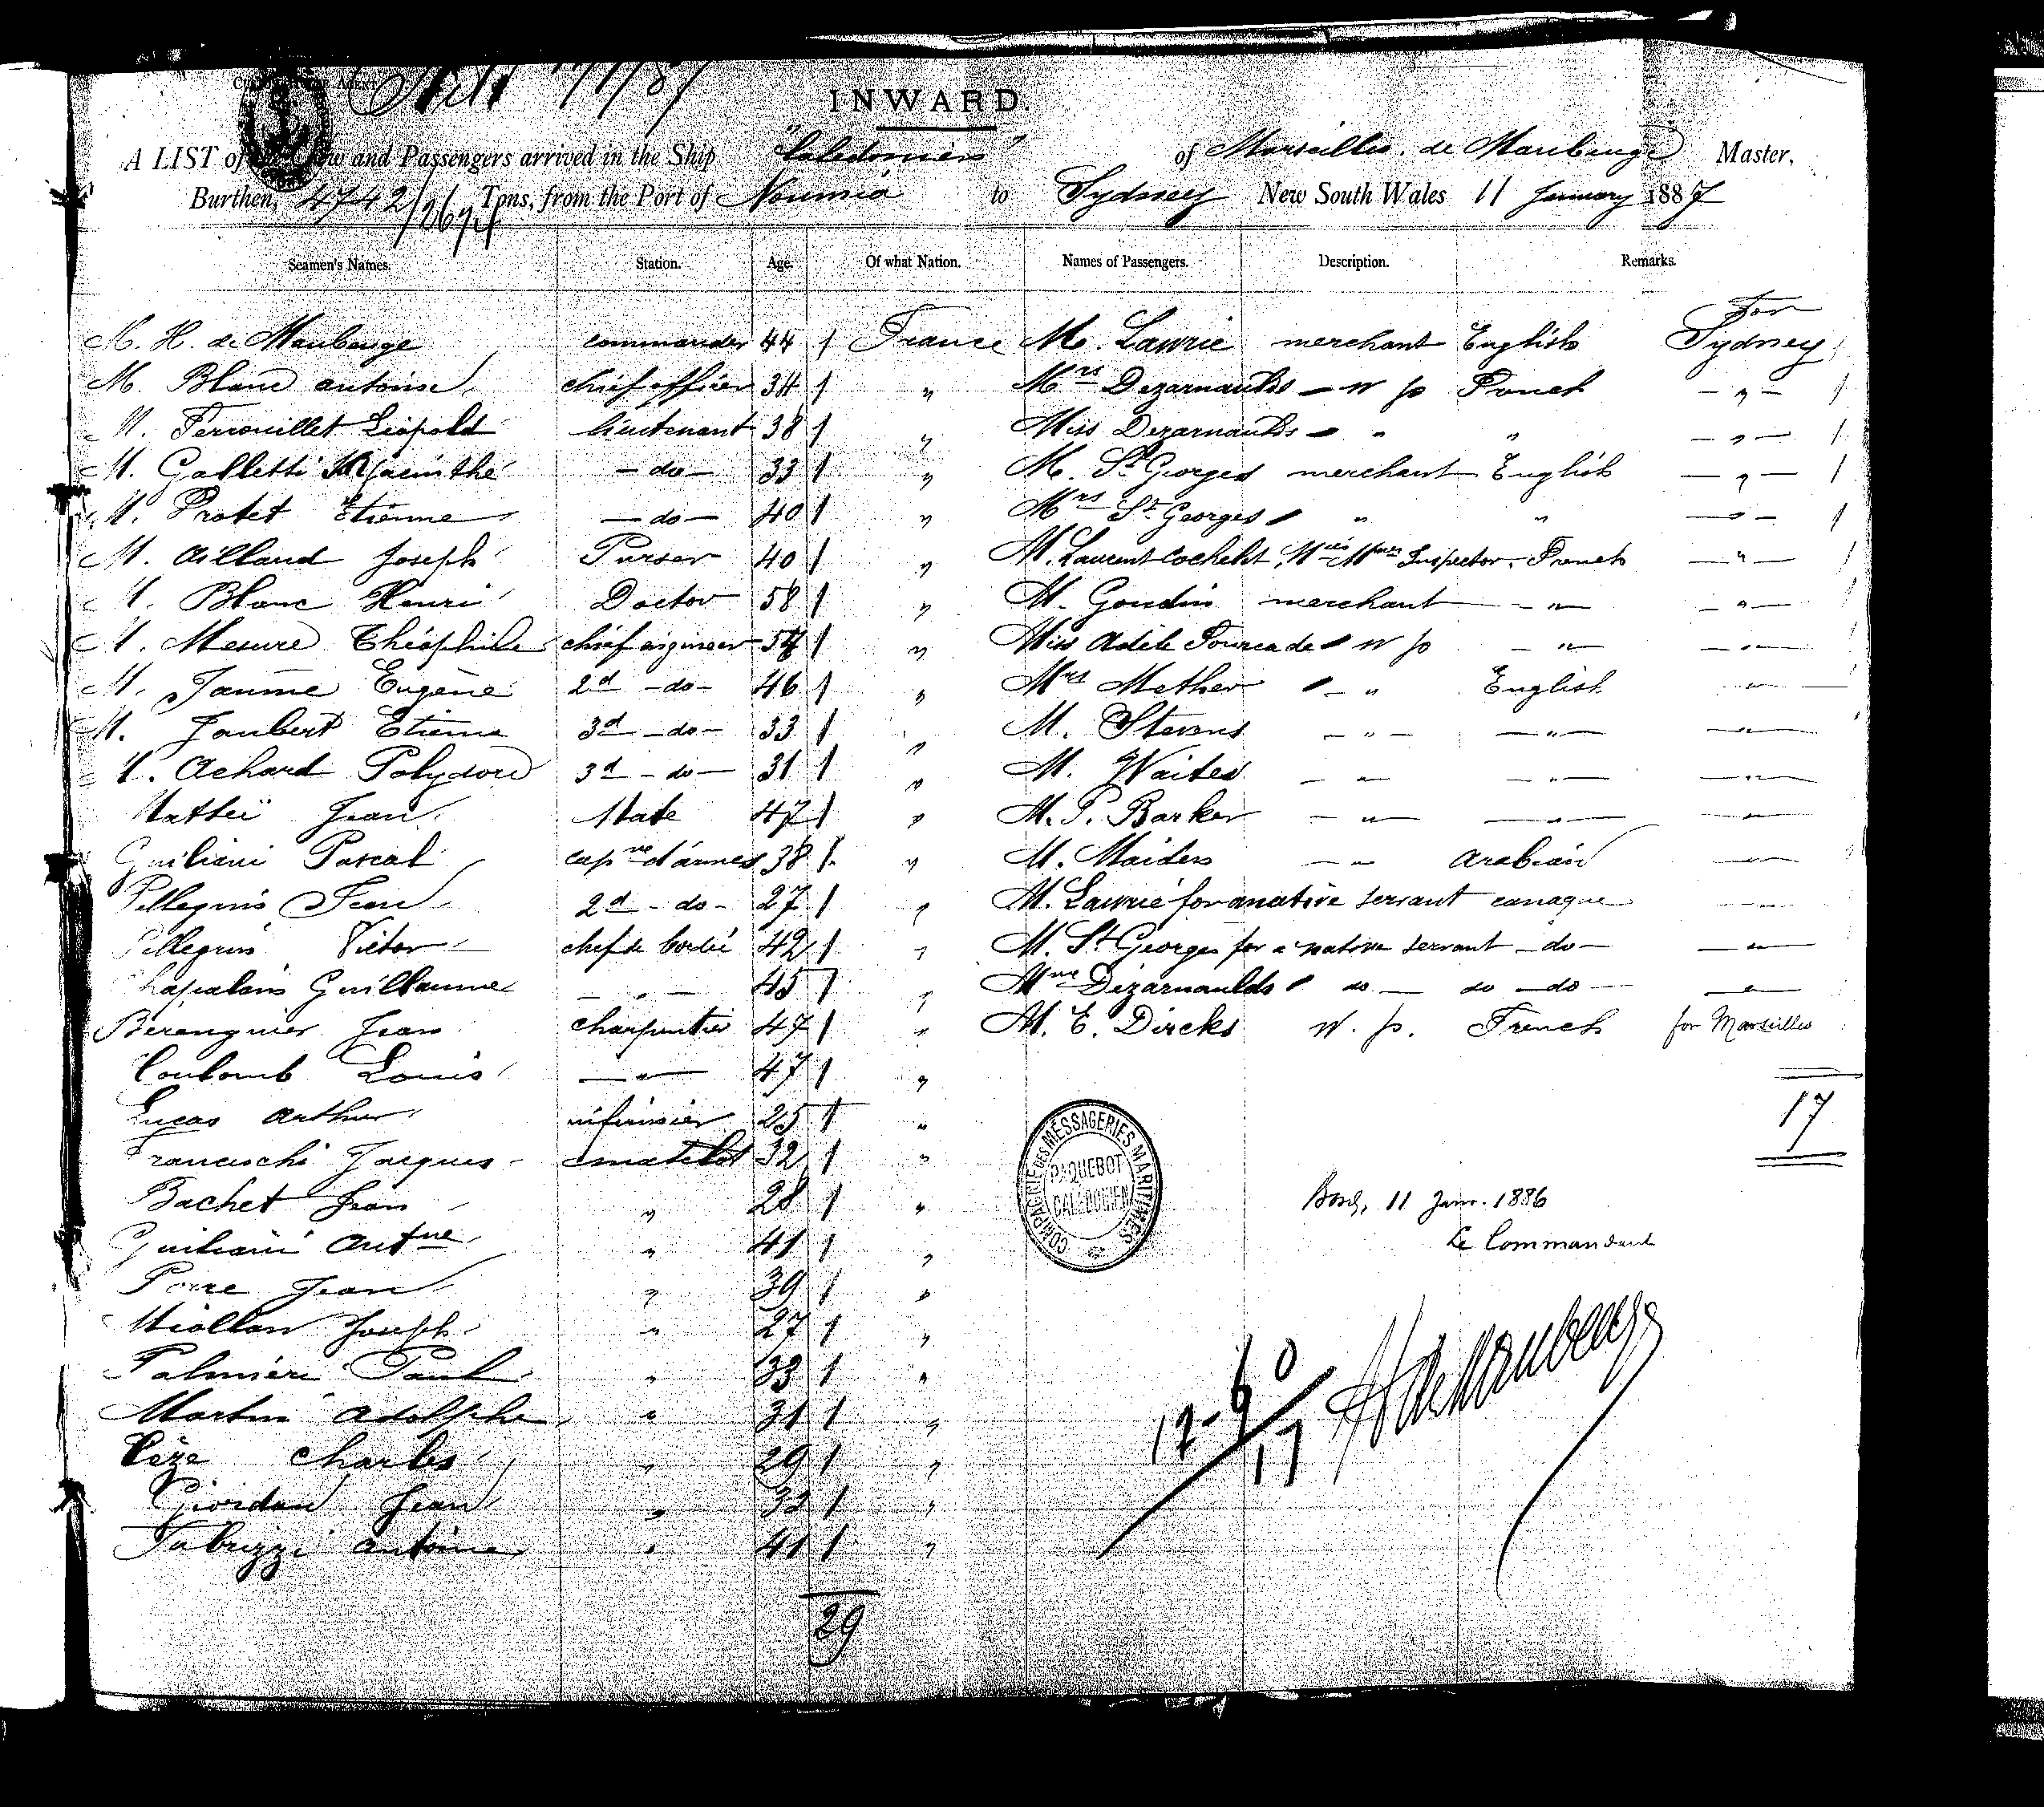 INWARD.
A LIST of the Crew and Passengers arrived in the Ship "Calédonien" of Marseilles, de Maubeuge Master,
Burthen, 4742/ Tons, from the Port of Nouméa to Sydney New South Wales 11 January 1887
Seamen's Names. Station. Age. Of what Nation. Names of Passengers. Description. Remarks.
For
M. H. de Maubeuge commander 44 1 France M. Lawrie merchant English Sydney
M. Blanc antoine chief officer 34 1 " Mrs Dezarnaulds - w p French - " - 1
M. Ferrouillet Léopold lieutenant 38 1 " Miss Dezarnaulds - " " - " - 1
M. Galletti Hyacinthe - do - 33 1 " M. St Georges merchant English - " - 1
M. Protet Etienne - do - 40 1 " Mrs St Georges " " - " - 1
M. Ailland Joseph Purser 40 1 " M. Laurent Cochelet, Inspector. French - " - 1
M. Blanc Henri Doctor 58 1 " M. Goudin merchant - " - - " - 1
M. Mesure Théophile chief engineer 54 1 " Miss Adèle Fourcade w p - " - - " -
M. Jaume Eugène 2d - do - 46 1 " Mrs Mether - " English - " -
M. Joubert Etienne 3d - do - 33 1 " M. Stevens - " - - " - - " -
M. Achard Polydore 3d - do - 31 1 " M. Waites - " - - " - - " -
Matteï Jean Mate 47 1 " M. P. Barker - " - - " - - " -
Guiliani Pascal capne d'armes 38 1 " M. Maiders - " arabian - " -
Pellegrini Jean 2d - do - 27 1 " M. Lawrie for a native servant canaque - " -
Pellegrini Victor chef de bordée 42 1 " M. St Georges for a native servant - do - - " -
Chapalain Guillaume - " - 45 1 " Mme Dézarnaulds do - do - do - - " -
Bérenguier Jean charpentier 47 1 " M. E. Dircks w. p. French for Marseilles
Coulomb Louis - " - 47 1 "
Lucas arthur infirmier 25 1 " 17
Franceschi Jacques matelot 32 1 "
COMPAGNIE DES MESSAGERIES MARITIMES
PAQUEBOT
CALÉDONIEN
Bachet Jean " 28 1 " Bord, 11 Janv. 1886
Guiliani Antne " 41 1 " Le Commandant
Porre Jean " 39 1 "
Miollan Joseph " 27 1 " HdeMaubeuge
Palmiéri Paul " 33 1 "
Martin Adolphe " 31 1 "
Cèze Charles " 29 1 " 17
Giordan Jean " 33 1 "
Fabrizzi antoine " 41 1 "
29